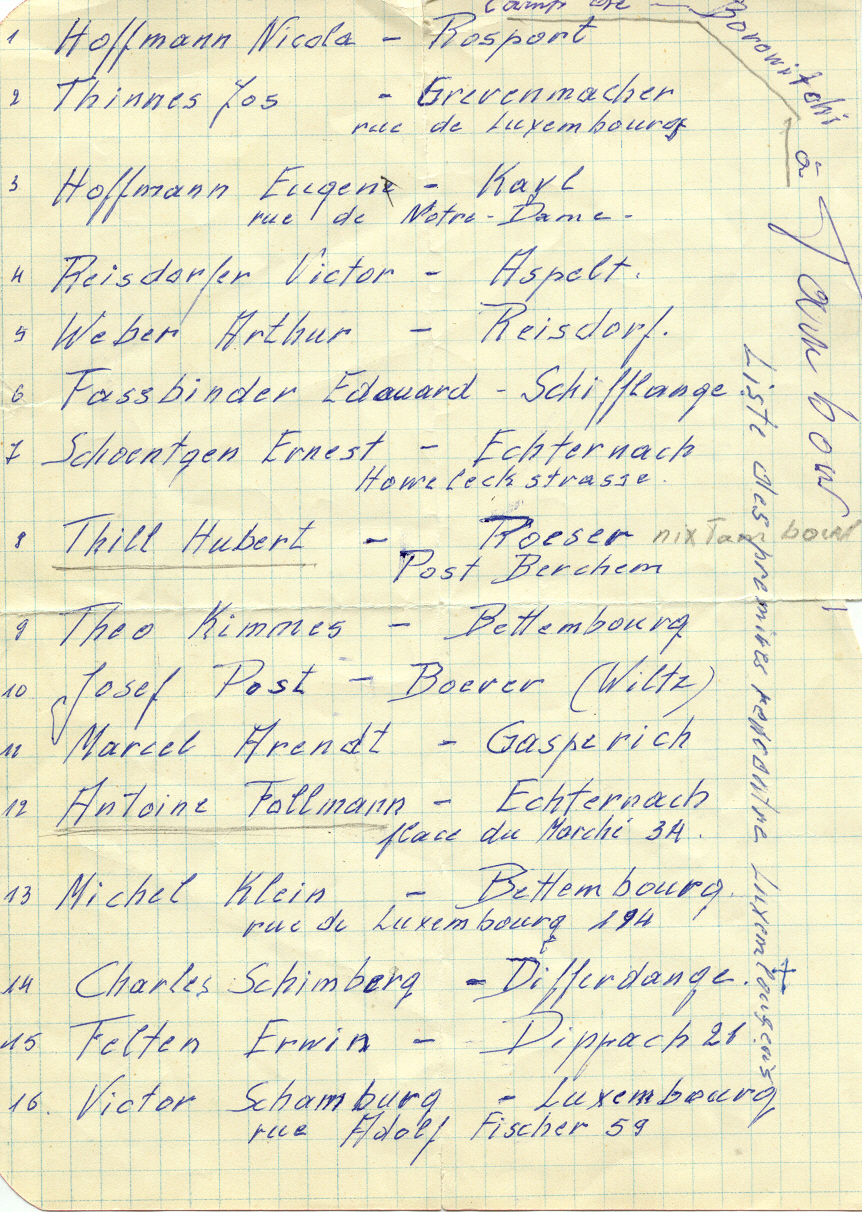 Camp de Borowitchi à Tambow
1 Hoffmann Nicola - Rosport
2 Thinnes Jos - Grevenmacher
rue de Luxembourg
3 Hoffmann Eugene - Kayl
rue de Notre-Dame -
4 Reisdorfer Victor - Aspelt.
5 Weber Arthur - Reisdorf.
6 Fassbinder Edouard - Schifflange
7 Schoentgen Ernest - Echternach
Howeleckstrasse.
8 Thill Hubert - Roeser nix Tambow
Post Berchem
9 Theo Kimmes - Bettembourg
10 Josef Post - Boever (Wiltz)
11 Marcel Arendt - Gasperich
12 Antoine Follmann - Echternach
place du Marché 34.
13 Michel Klein - Bettembourg.
rue de Luxembourg 194
14 Charles Schimberg - Differdange. +
15 Felten Erwin - Dippach 21
16. Victor Schamburg - Luxembourg
rue Adolf Fischer 59
Liste des premires Luxembougeois